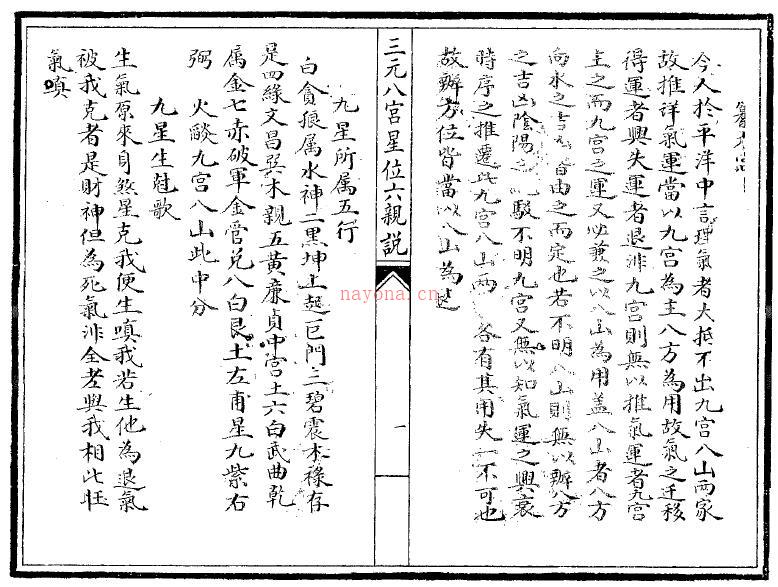 今人於平洋中言理氣者大抵不出九宮八山兩家
故推详氣運當以九宮為主八方為用故氣之迁移
得運者興失運者退非九宮則無以推氣運者九宮
主之而九宮之運又必兼之以八山為用盖八山者八方
向水之吉 皆由之而定也若不明八山則無以辦八方
之吉凶陰陽之 駁不明九宮又無以知氣運之興衰
時序之推遷此九宮八山两 各有其用失一不可也
故辦方位皆當以八山為
三元八宮星位六親説
一
九星所属五行
白貪狼属水神二黒坤上起巨門三碧震木禄存
是四緣文昌巽木親五黄廉貞中宮土六白武曲乾
属金七赤破軍金管兑八白艮土左甫星九紫右
弼 火燄九宮八山此中分
九星生尅歌
生氣原來身煞星克我便生嗔我若生他為退氣
被我克者是財神但為死氣非全差與我相比旺
氣嗔
nayona.cn